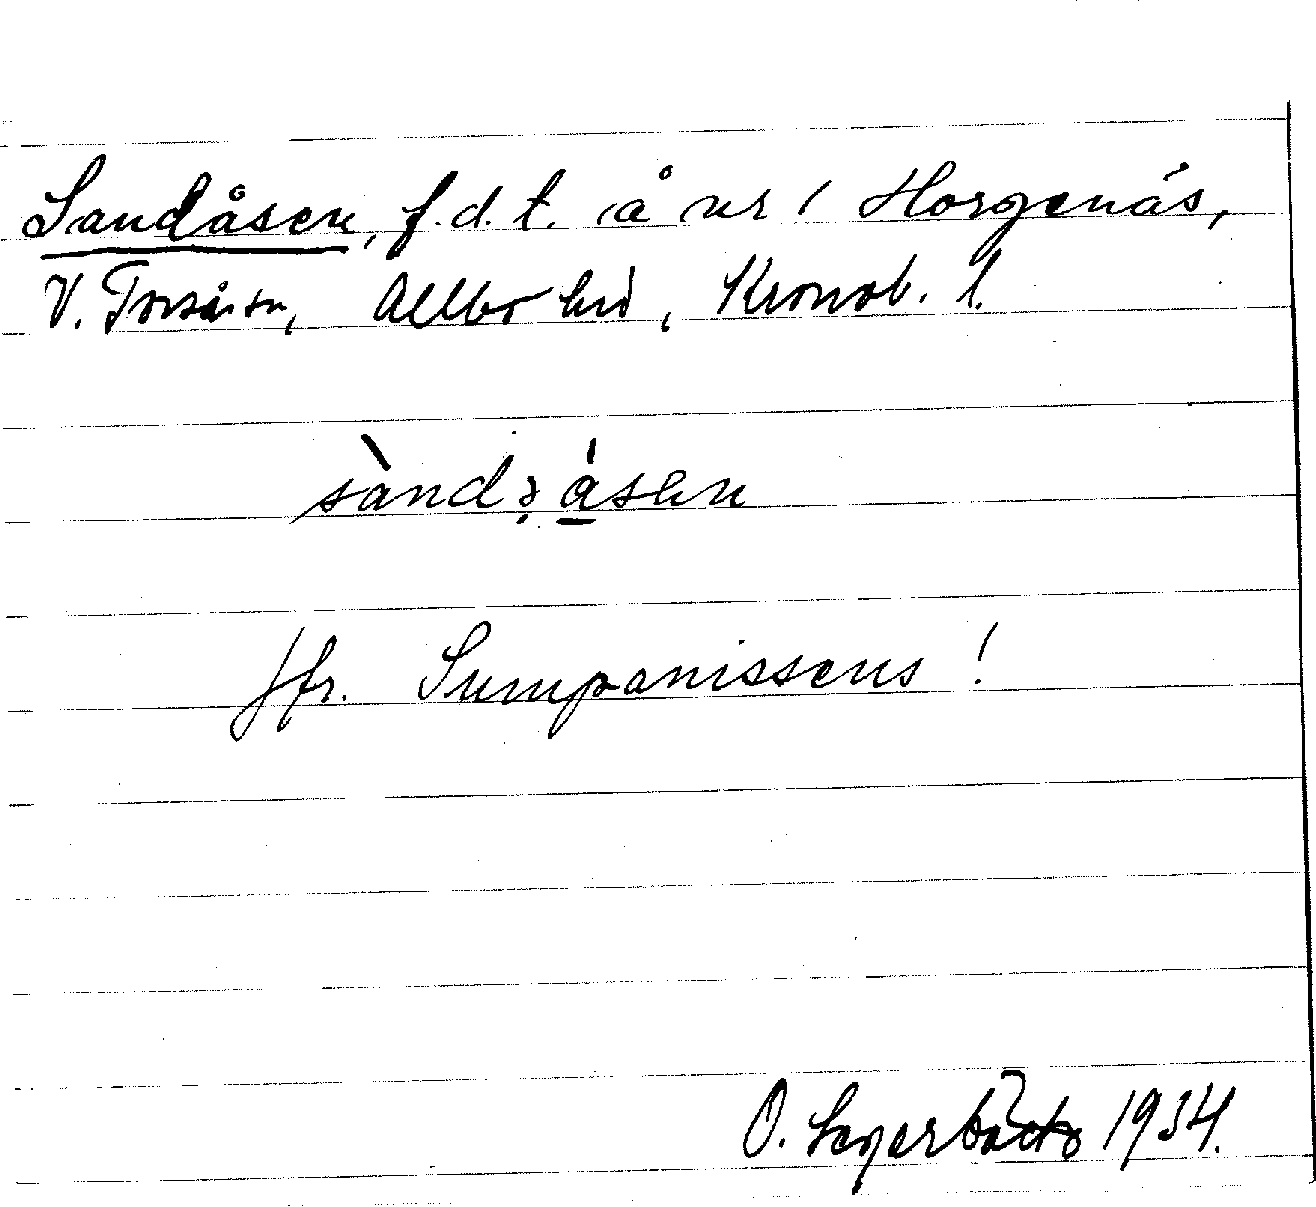 Sandåsen, f.d.t. å nr 1 Horgenäs,
V. Torsås sn, Allbo hd, Kronob. l.
sànd åsen
Jfr. Sumpanissens!
O. 1934.